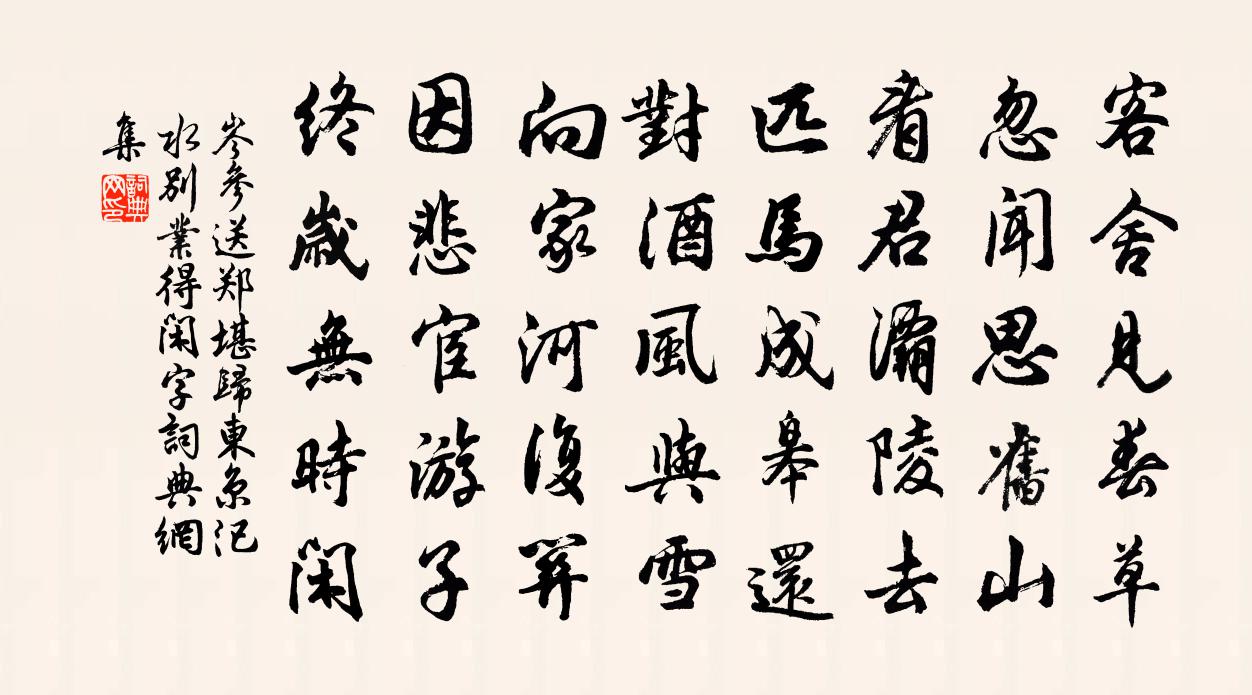 客舍見春草
忽聞思舊山
看君灞陵去
匹馬成皋還
對酒風與雪
向家河復關
因悲宦游子
終歲無時閑
岑參送郑堪歸東京汜
水別業得閑字詞典網
集
詞典网印